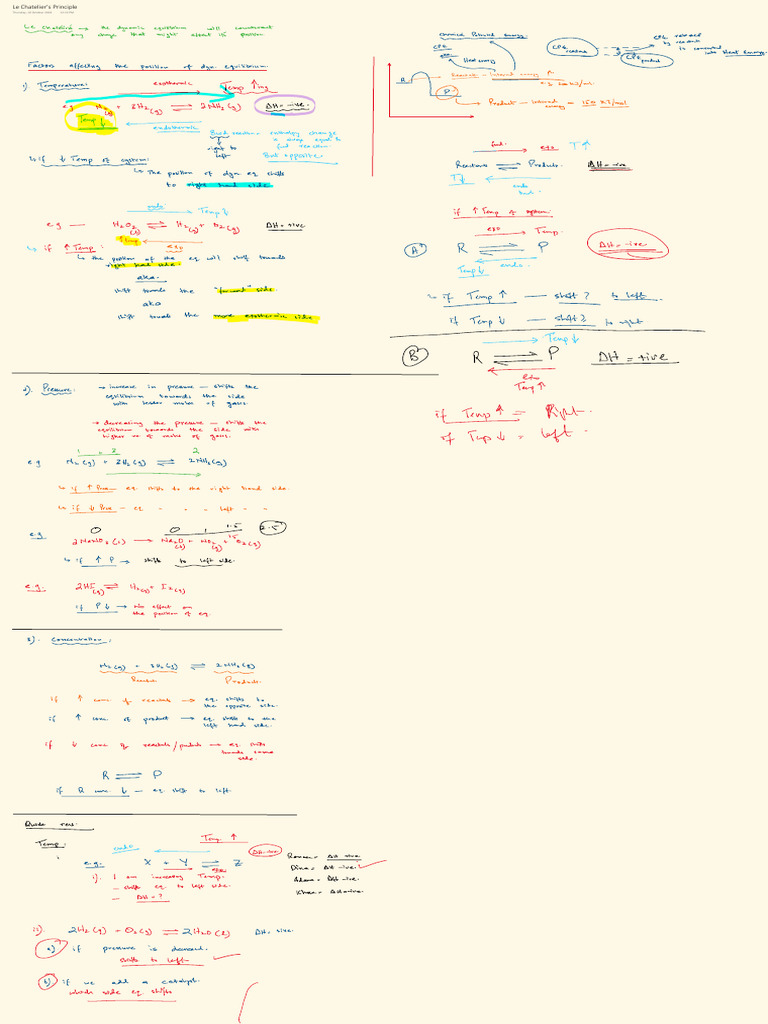 Le Chatelier's Principle
Le Chatelier → the dynamic equilibrium will counteract
any change that might affect its position
Factors affecting the position of dyn. equilibrium.
1) Temperature:
exothermic
Temp ↑ing
e.g N₂(g) + 3H₂(g) ⇌ 2NH₃(g) ΔH = -ive.
Temp ↓
endothermic
Back reaction = enthalpy change
is always equal to
fwd reaction
But opposite
right to
left
↳ if ↓ Temp of system:
↳ The position of dyn. eq shifts
to right hand side
endo
Temp↓
e.g — H₂O₂(g) ⇌ H₂(g) + O₂(g) ΔH = +ive
Temp
exo
↳ if ↑ Temp:
↳ the position of the eq will shift towards
right hand side.
aka
shift towards the "forward" side
aka
shift towards the more exothermic side
2). Pressure:
→ increase in pressure — shifts the
equilibrium towards the side
with lesser moles of gases.
→ decreasing the pressure — shifts the
equilibrium towards the side with
higher no of moles of gases.
1 3 2
e.g N₂(g) + 3H₂(g) ⇌ 2NH₃(g)
↳ if ↑ Pres — eq. shifts to the right hand side.
↳ if ↓ Pres — eq. " " " left " "
0 0 1 1.5 2.5
e.g
↳ if ↑ P → shifts to left side.
e.g. 2HI(g) ⇌ H₂(g) + I₂(g)
if P ↓ → No effect on
the position of eq.
3). Concentration:
N₂(g) + 3H₂(g) ⇌ 2NH₃(g)
Reactants Products.
if ↑ conc of reactants → eq. shifts to
the opposite side.
if ↑ conc of product → eq. shifts to the
left hand side.
if ↓ conc of reactants/products → eq. shifts
towards same
side.
R ⇌ P
if R conc ↓ — eq. shift to left.
Temp:
Temp ↑
endo
ΔH = -ive
e.g. X + Y ⇌ Z
exo
1). I am increasing Temp.
— shifts eq. to left side.
— ΔH = ?
ΔH -ive
ΔH -ive
ΔH -ive.
ΔH -ive.
2H₂(g) + O₂(g) ⇌ 2H₂O(l) ΔH = -ive.
a) if pressure is decreased.
shifts to left
b) if we add a catalyst.
which side eq. shifts
Chemical Potential Energy.
CPE
Heat energy
CPE reactants
CPE product
CPE
by reactants
is converted
into Heat Energy.
R
P
Reactants — internal energy
Product — internal energy = 150 kJ/mol
fwd. exo T↑
Reactions ⇌ Products. ΔH = -ive
T↓
endo
if ↑ Temp of system:
exo Temp.
A R ⇌ P ΔH = -ive
Temp↓ endo.
↳ if Temp ↑ — shift? to left.
if Temp ↓ — shift? to right
Temp↓
B R ⇌ P ΔH = +ive
exo
Temp↑
if Temp ↑ = Right.
if Temp ↓ = left.